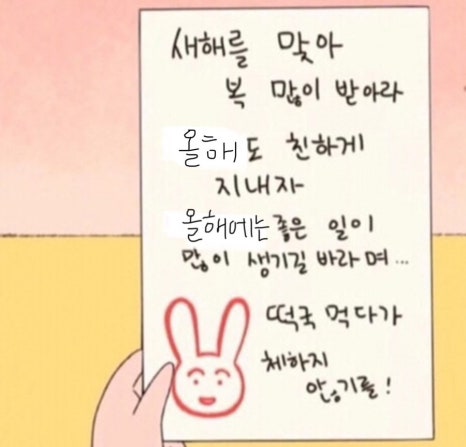 새해를 맞아
복 많이 받아라
올해도 친하게
지내자
올해에는 좋은 일이
많이 생기길 바라며...
떡국 먹다가
체하지
않기를!